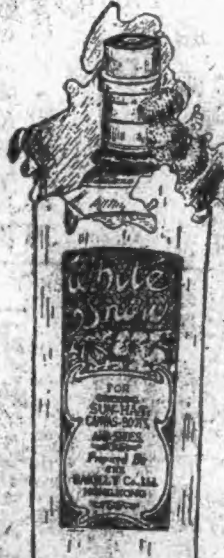 White
Snow
FOR
SUN-HATS,
CANVAS-BOOTS,
AND SHOES.
Prepared By
THE
Co. Ltd.
HONGKONG